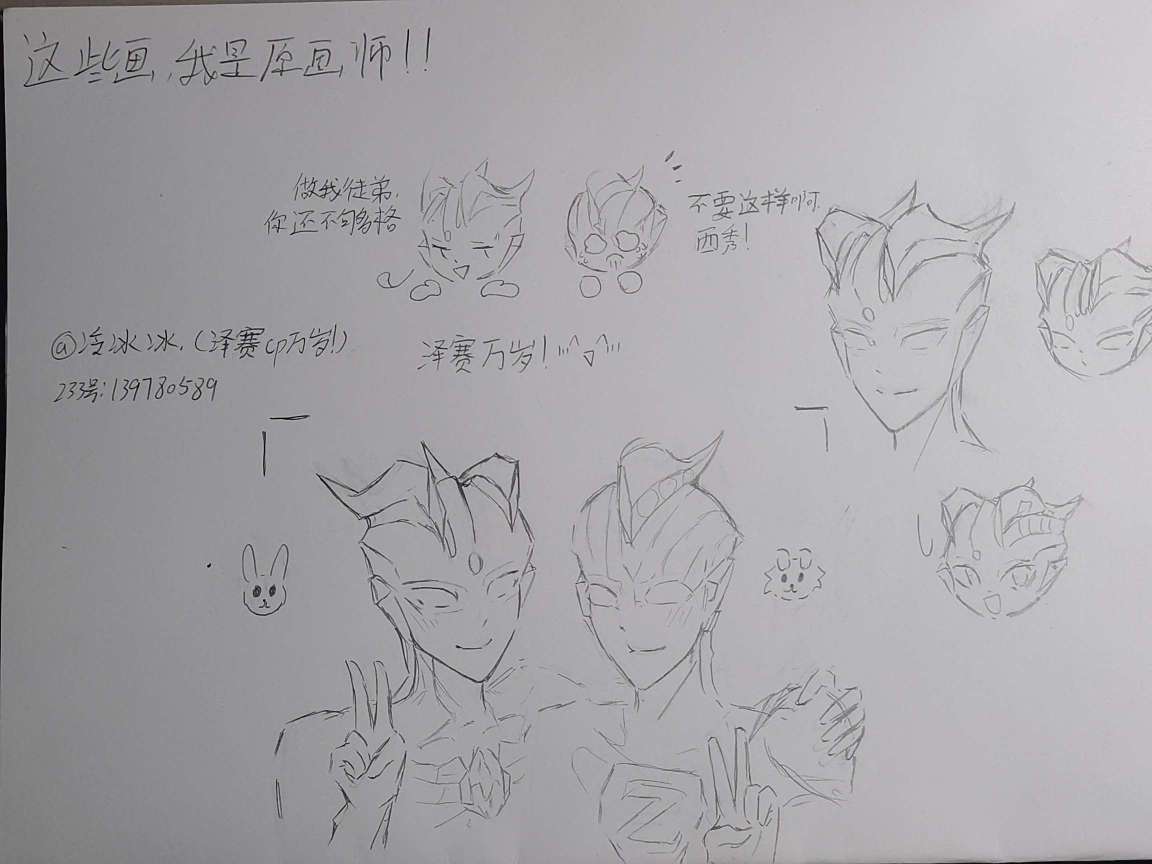 这些画,我是原画师!!
做我徒弟,
你还不够格
不要这样啊,
西秀!
@冷冰冰.(泽赛cp万岁!)
233号:139780589
泽赛万岁!
Z